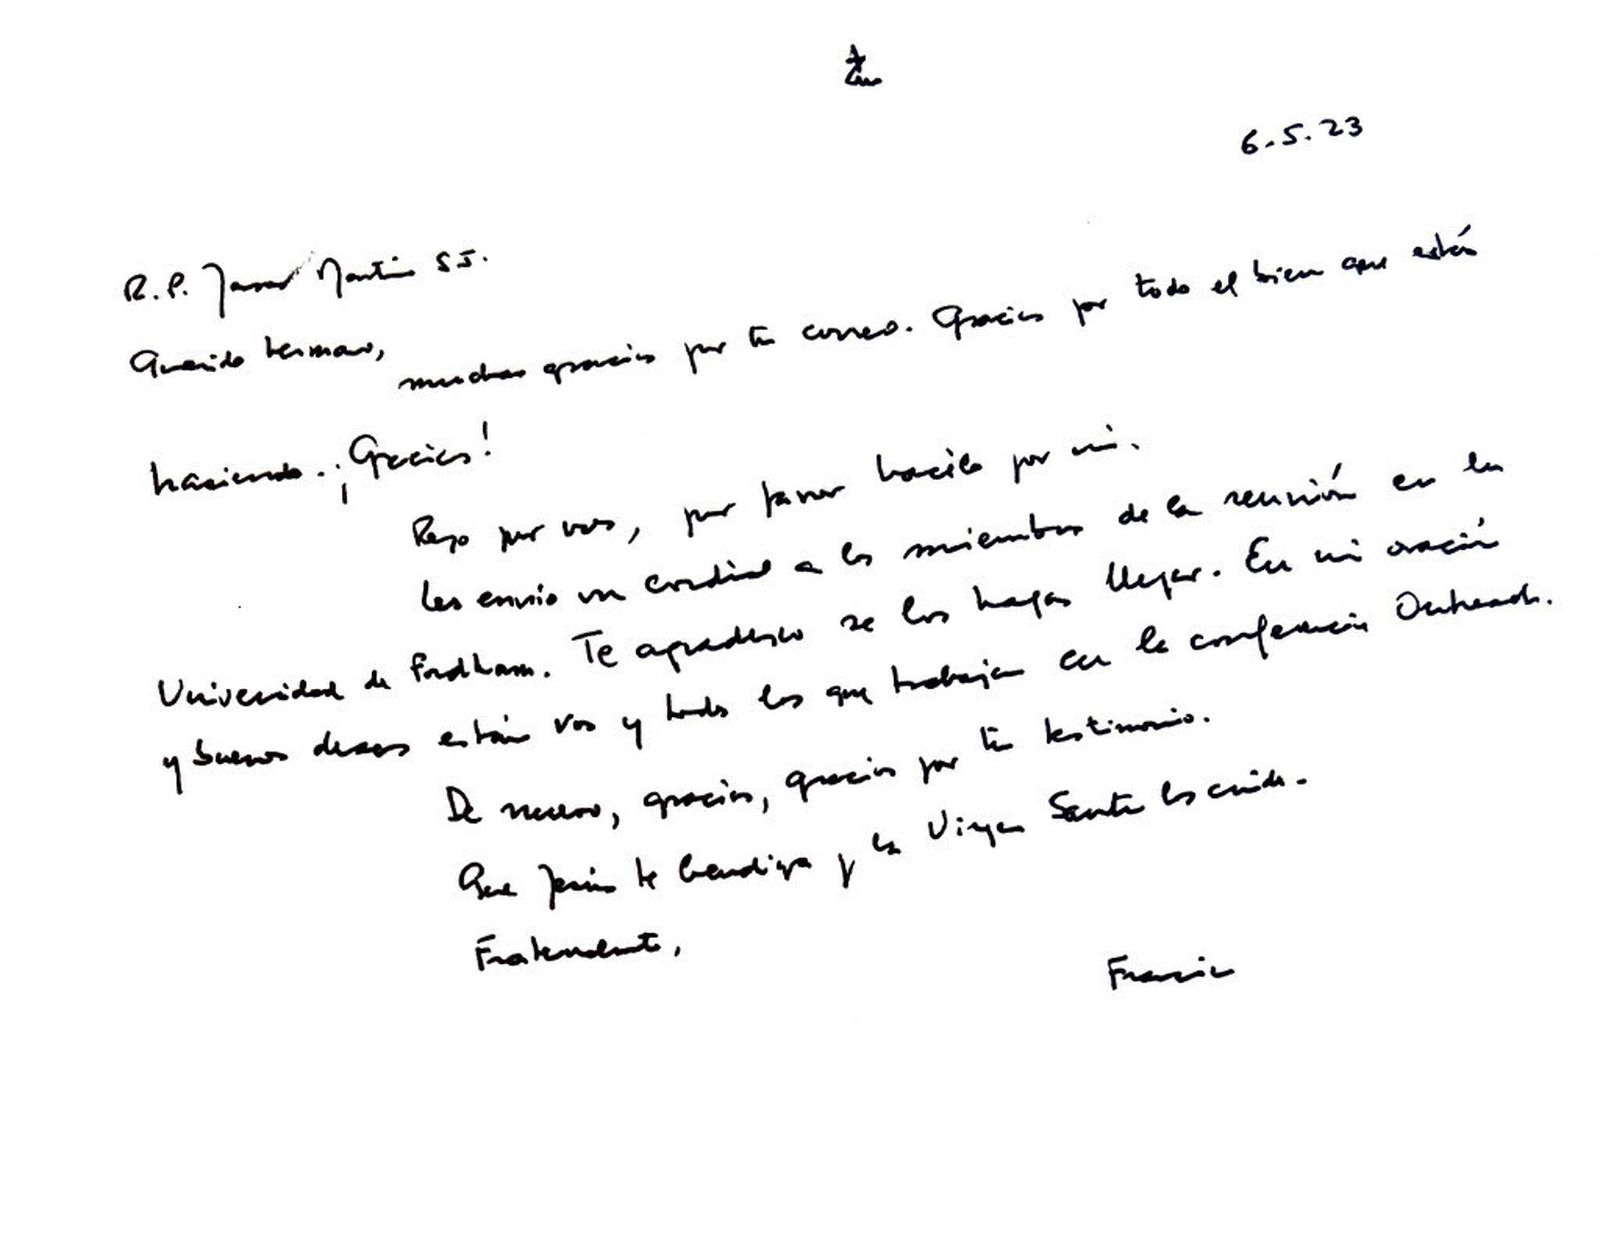 6.5.23
R.P. James Martin SJ.
Querido hermano,
muchas gracias por tu correo. Gracias por todo el bien que estás
haciendo. ¡Gracias!
Rezo por vos, por favor hacélo por mi.
Les envío un cordial a los miembros de la reunión en la
Universidad de Fordham. Te agradezco se los hagas llegar. En mi oración
y buenos deseos están vos y todos los que trabajan en la conferencia Outreach.
De nuevo, gracias, gracias por tu testimonio.
Que Jesús te bendiga y la Virgen Santa los cuide.
Fraternalmente,